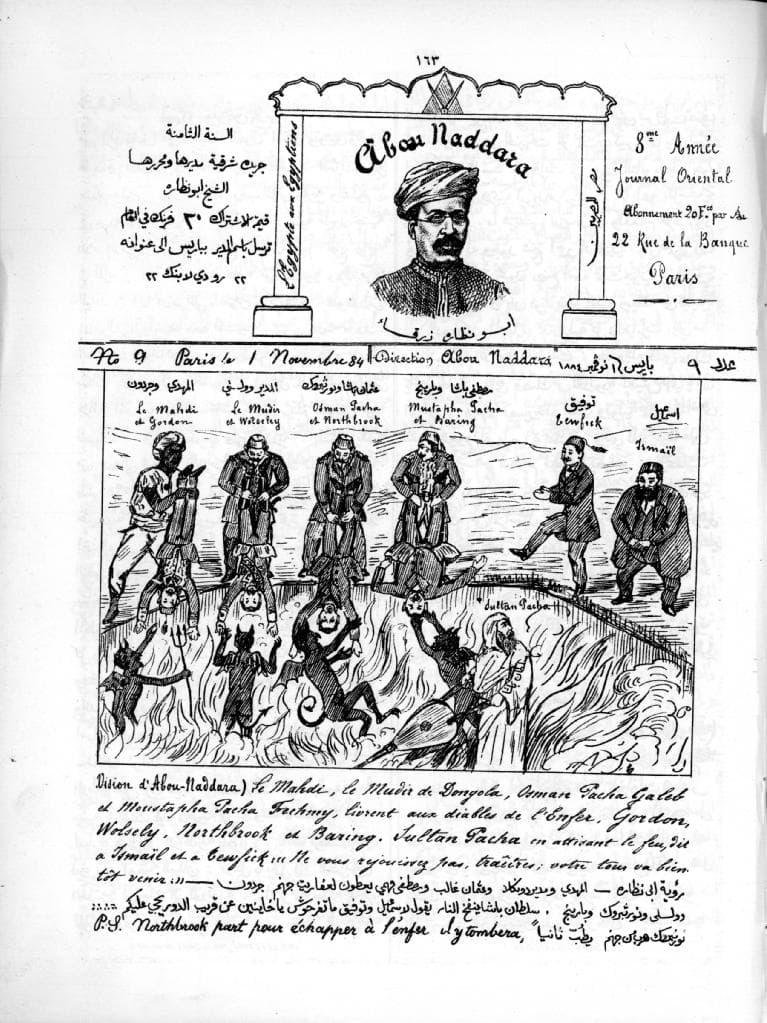 ١٦٣
السنة الثامنة
جريدة شرقية مديرها ومحررها
الشيخ ابو نظاره
قيمة الاشتراك ٢٠ فرنك في العام
ترسل باسم المدير بباريس الى عنوانه
٢٢ رو دي لا بنك ٢٢
L'Egypte aux Egyptiens
Abou Naddara
مصر للمصريين
ابو نظاره زرقاء
8me Année
Journal Oriental
Abonnement 20 F.cs par An
22 Rue de la Banque
Paris
No 9 Paris le 1 Novembre 84 Direction Abou Naddara باريس ١ نوفمبر ١٨٨٤ عدد ٩
المهدي وجردون
Le Mahdi
et Gordon
المدير وولسلي
Le Mudir
et Wolseley
عثمان باشا ونورثبروك
Osman Pacha
et Northbrook
مصطفى باشا وبارينج
Mustapha Pacha
et Baring
توفيق
Tewfick
اسمعيل
Ismaïl
Sultan Pacha
Vision d'Abou-Naddara) Le Mahdi, le Mudir de Dongola, Osman Pacha Galeb
et Moustapha Pacha Fechmy, livrent aux diables de l'Enfer, Gordon,
Wolsely, Northbrook et Baring. Sultan Pacha en attisant le feu, dit
a Ismaïl et a Tewfick !!! Ne vous rejouissez pas, traîtres; votre tour va bien
tôt venir !!
رؤية ابي نظاره — المهدي ومدير دونكله وعثمان غالب ومصطفى فهمي يعطون لعفاريت جهنم جردون
وولسلي ونورثبروك وبارينج . سلطان باشا ينفخ النار يقول لاسمعيل وتوفيق ما تفرحوش يا خاينين عن قريب الدور يجي عليكم
P.S. Northbrook part pour échapper à l'enfer il y tombera, نورثبروك هرب من جهنم يطب ثانيا